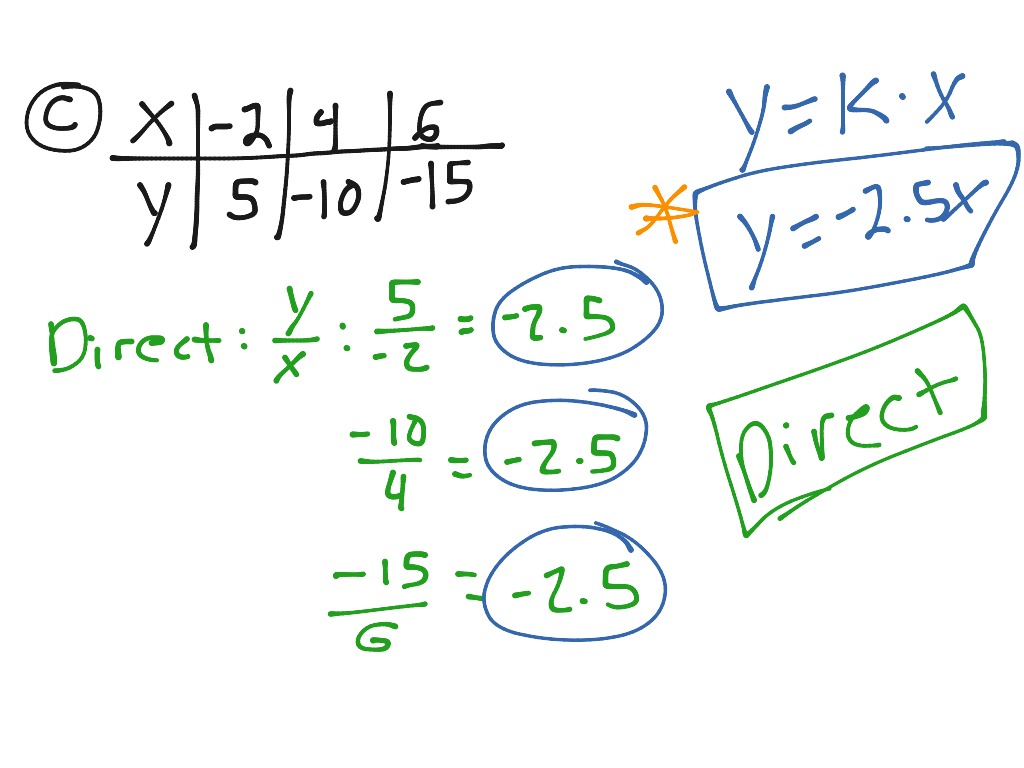 C
X -2 4 6
y 5 -10 -15
y = K · X
* y = -2.5x
Direct: y/x : 5/-2 = -2.5
-10/4 = -2.5
-15/6 = -2.5
Direct